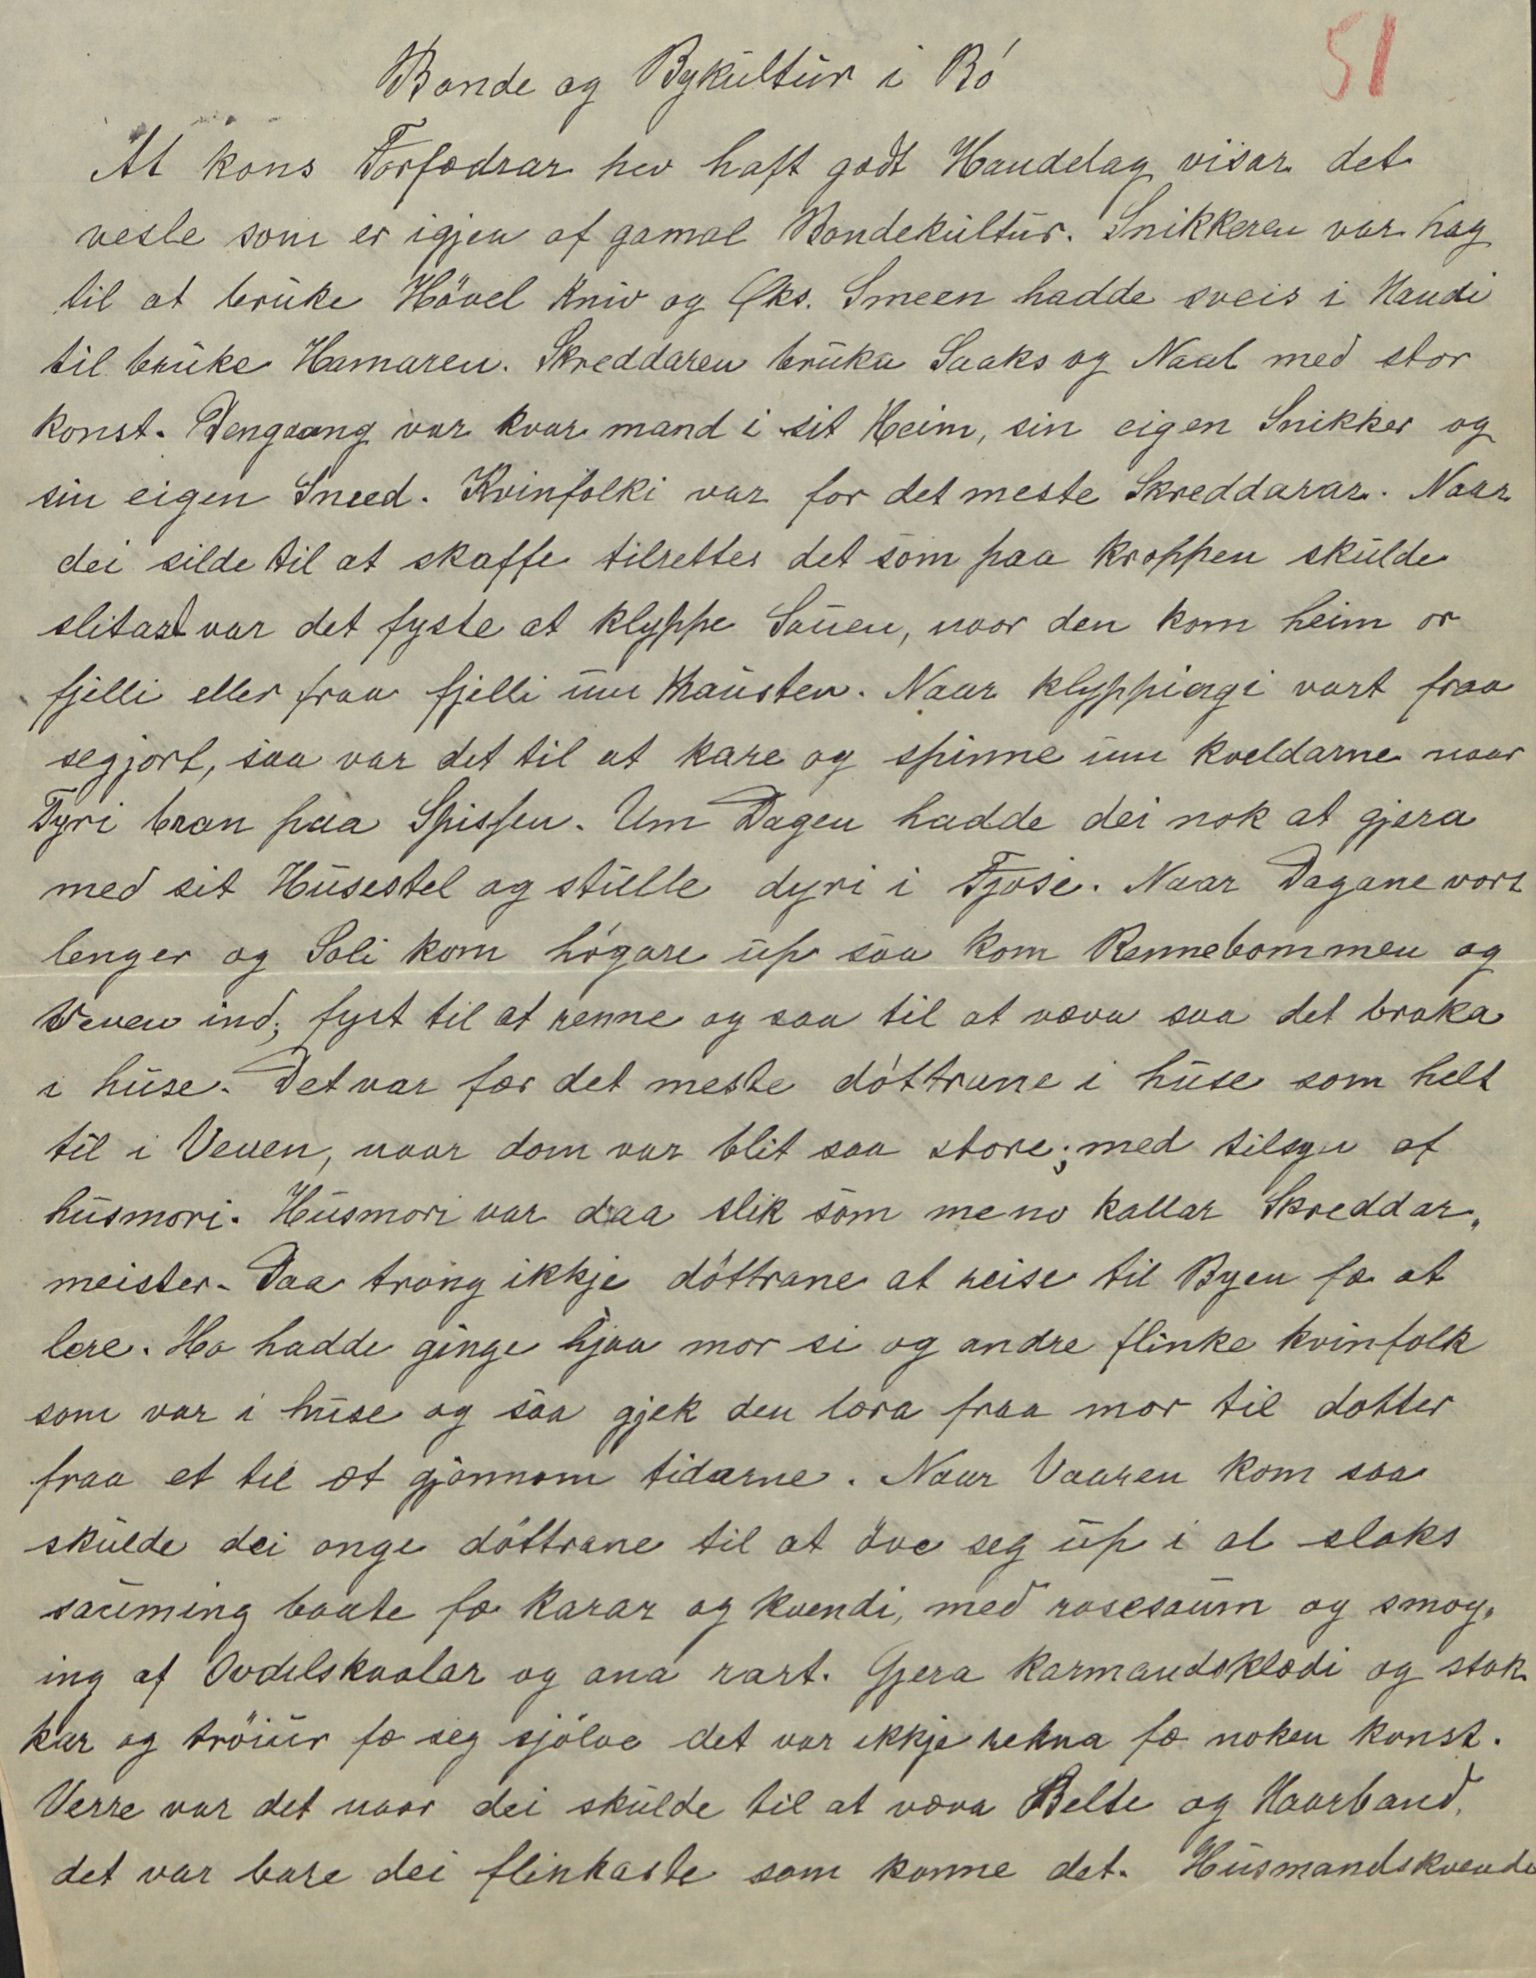 51
Bonde og Bykultur i Bó
At kons Forfædrar hev haft godt Haandelag visar det
vesle som er igjen af gamal Bondekultur. Snikkeren var hag
til at bruke Hövel Kniv og Öks. Smeen hadde sveis i Haandi
til bruke Hamaren. Skreddaren bruka Saaks og Naal med stor
konst. Dengaang var kvar mand i sit Heim, sin eigen Snikker og
sin eigen Smed. Kvinfolki var for det meste Skreddarar. Naar
dei silde til at skaffe tilrettes det som paa kroppen skulde
slitast var det fyste at klyppe Sauen, naar den kom heim or
fjelli eller fraa fjelli um Hausten. Naar klyppingi vart fraa
segjort, saa var det til at kare og spinne um kveldarne naar
Tyri bran paa Spissen. Um Dagen hadde dei nok at gjera
med sit Husestel og stulle dyri i Fjøsi. Naar Dagane vort
lenger og Soli kom högare up saa kom Rennebommen og
Veven ind; fyst til at renne og saa til at væva saa det braka
i huse. Det var for det meste döttrane i huse som helt
til i Veven, naar dom var blit saa store; med tilsyn af
husmori. Husmori var daa slik som me no kallar Skreddar„
meister. Daa trong ikkje döttrane at reise til Byen fæ at
lære. Ho hadde ginge hjaa mor si og andre flinke kvinfolk
som var i huse og saa gjek den lora fraa mor til dotter
fraa et til æt gjønnom tidarne. Naar Vaaren kom saa
skulde dei onge döttrane til at öve seg up i al slaks
sauming baate fæ karar og kvendi, med rosesaum og smog„
ing af Ovdelskaalar og ana rart. Gjera karmandsklædi og stak
kar og tröiur fæ seg sjölve det var ikkje rekna fæ noken konst.
Verre var det naar dei skulde til at væva Belte og Haarband,
det var bare dei flinkaste som konne det. Husmandskvende